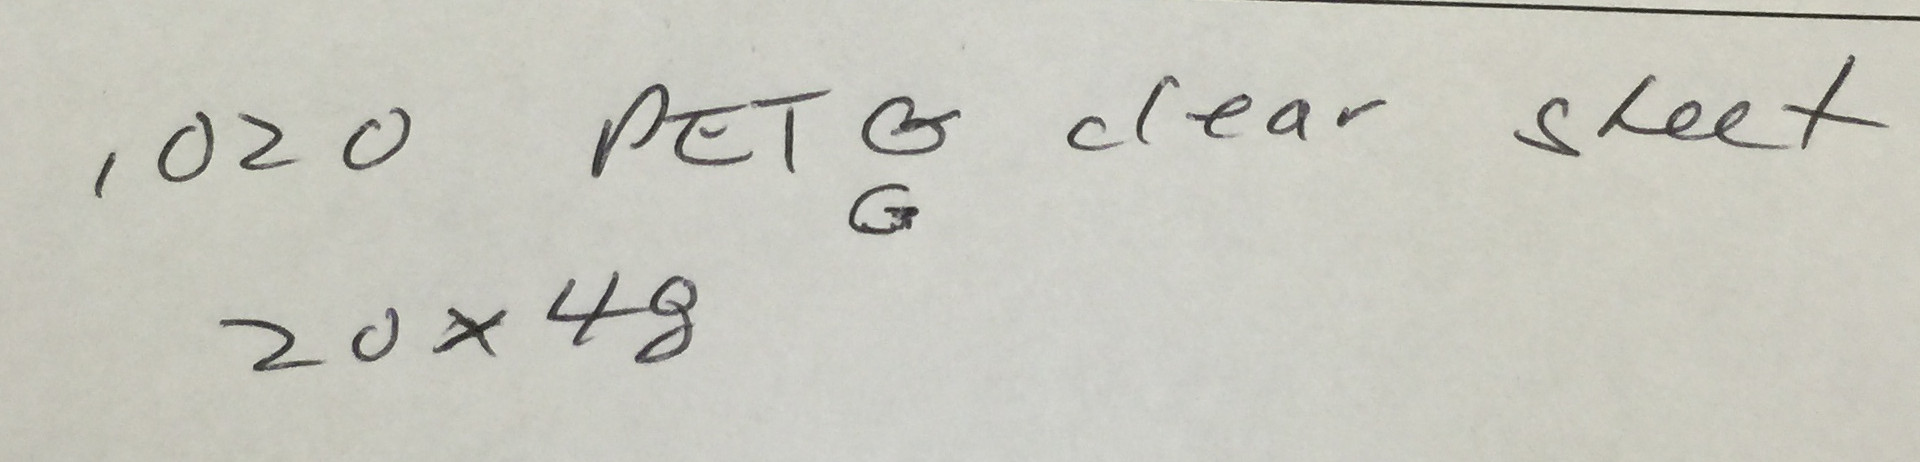 .020 PETG clear sheet
G
20x48